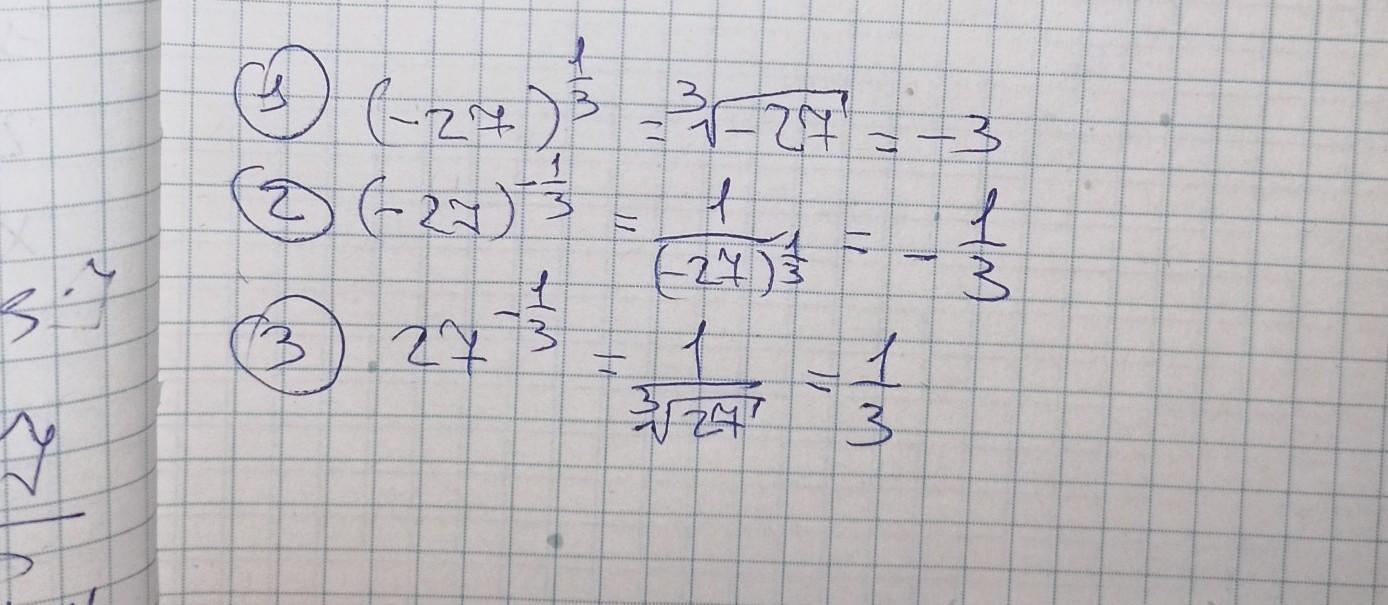 ① (-27)^{1/3} = ∛-27 = -3
② (-27)^{-1/3} = 1/(-27)^{1/3} = -1/3
③ 27^{-1/3} = 1/∛27 = 1/3